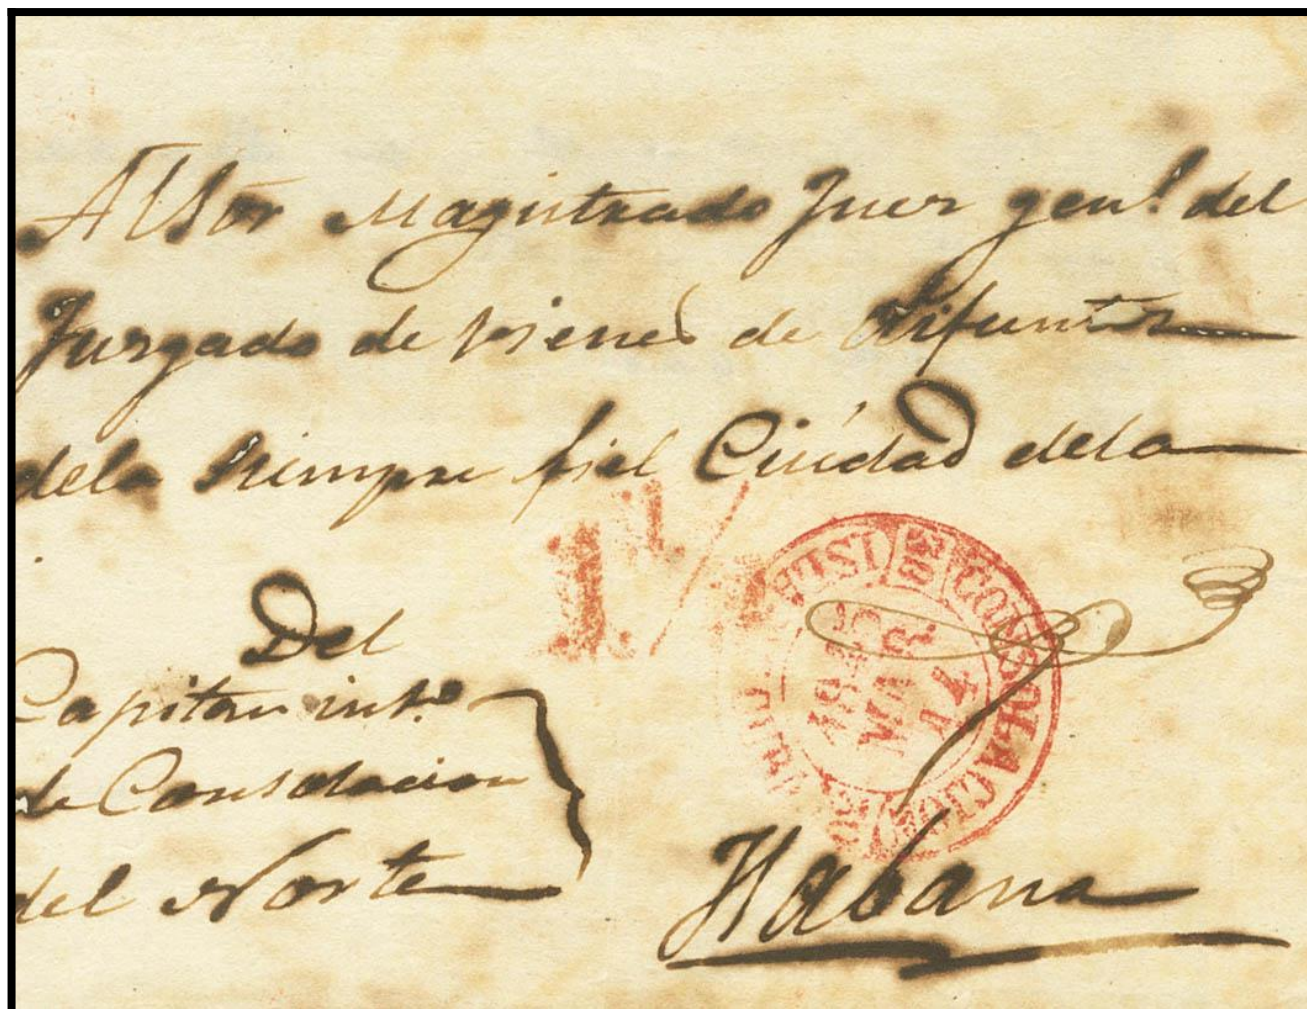 Al Sor Magistrado Juez genl. del
Juzgado de bienes de difuntos
dela Siempre fiel Ciudad dela
1.1/
CONSOLACION
ISLA
MAR
17
Del
Capitan
de Consolacion
del Norte
Habana